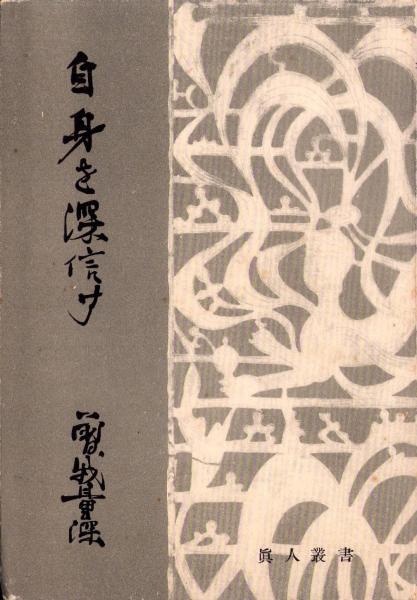 自身を深信す
曽我量深
眞人叢書